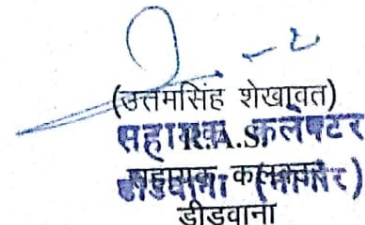 (उत्तमसिंह शेखावत)
सहायक कलेक्टर
R.A.S.
सहायक कलक्टर
डीडवाना (नागौर)
डीडवाना